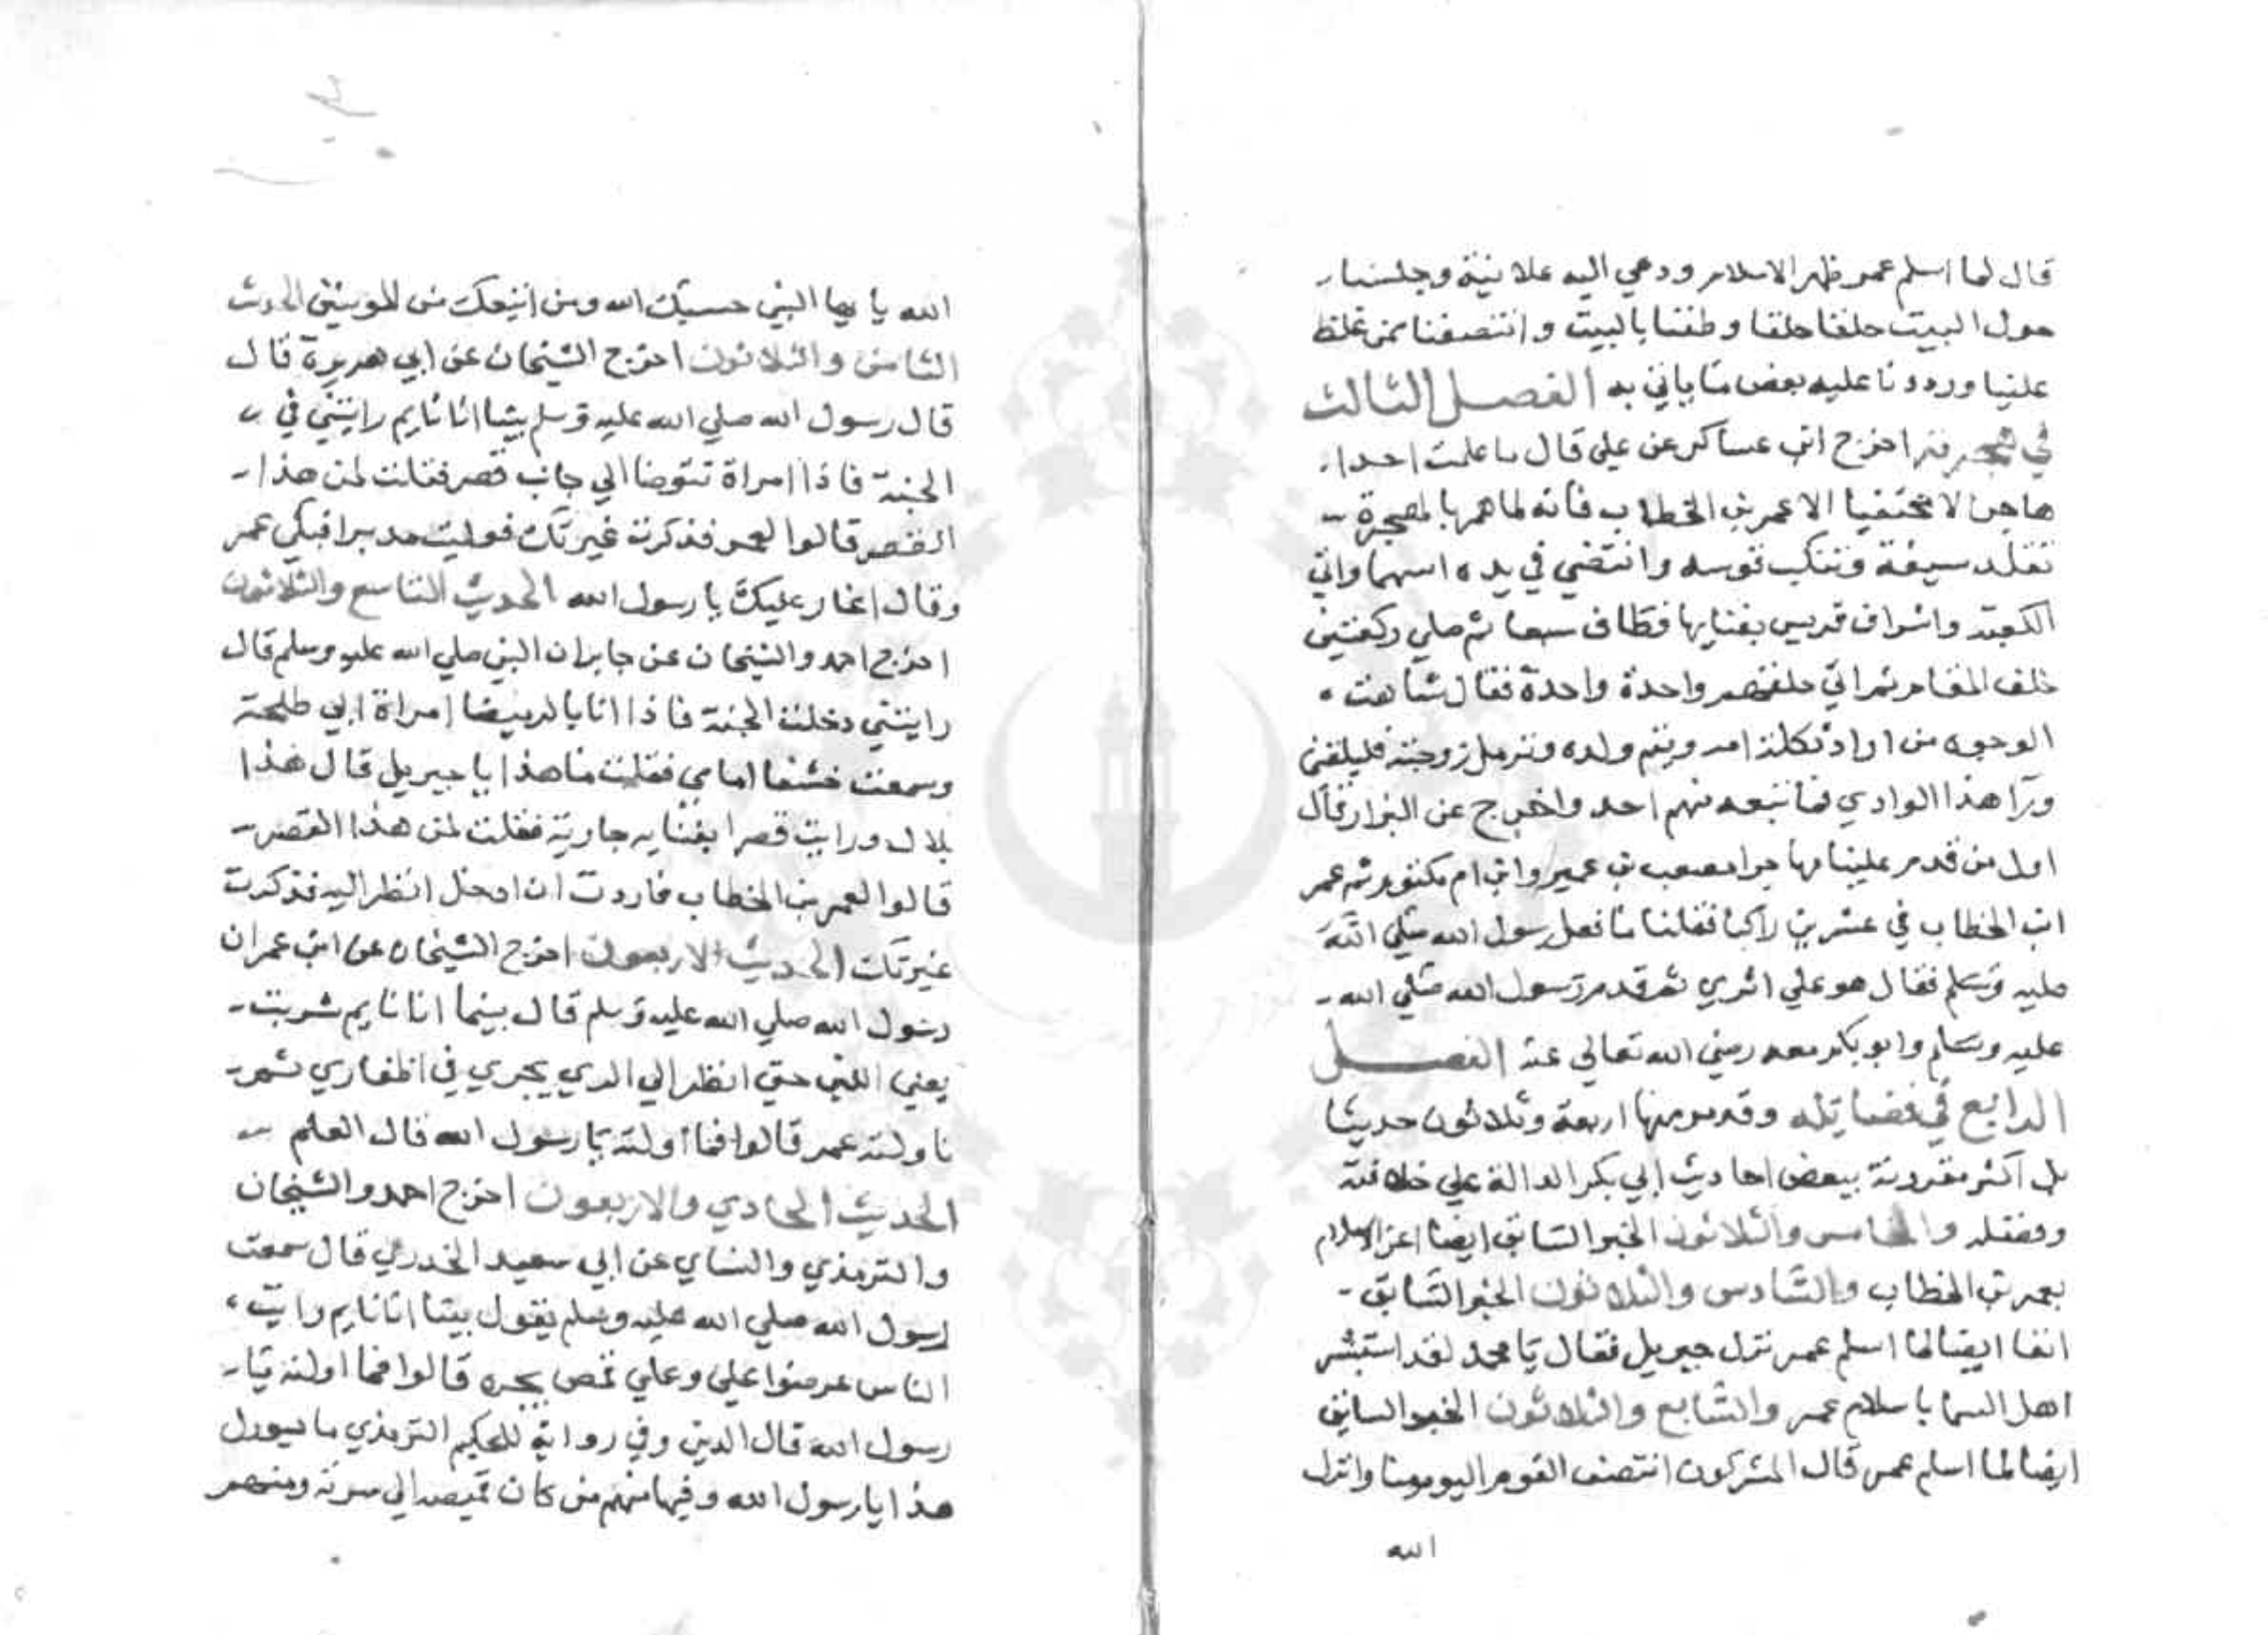 قال لما اسلم عمر ظهر الاسلام ودعي اليه علانية وجلسنا
حول البيت حلقا حلقا وطفنا بالبيت وانتصفنا ممن غلظ
علينا ورددنا عليه بعض ما ياتي به الفصل الثالث
في هجرته اخرج ابن عساكر عن علي قال ما علمت احدا
هاجر الا مختفيا الا عمر بن الخطاب فانه لما هم بالهجرة
تقلد سيفه وتنكب قوسه وانتضي في يده اسهما واتي
الكعبة واشراف قريس بفنايها فطاف سبعا ثم صلي ركعتين
خلف المقام ثم اتي حلقهم واحدة واحدة فقال شاهت
الوجوه من اراد تكلته امه ويتم ولده وترمل زوجته فليلقني
ورا هذا الوادي فما تبعه منهم احد واخرج عن البزار قال
اول من قدم علينا مهاجرا مصعب بن عمير وابن ام مكتوم ثم عمر
ابن الخطاب في عشرين راكبا فقلنا ما فعل رسول الله صلي الله
عليه وسلم فقال هو علي اثري ثم قدم رسول الله صلي الله
عليه وسلم وابو بكر معه رضي الله تعالي عنه الفصل
الرابع في فضايله وقد مر منها اربعة وثلاثون حديثا
بل اكثر مقرونة ببعض احاديث ابي بكر الدالة علي خلافته
وفضله والخامس والثلاثون الخبر السابق ايضا اعز الاسلام
بعمر بن الخطاب والسادس والثلاثون الخبر السابق
انفا ايضا لما اسلم عمر نزل جبريل فقال يا محمد لقد استبشر
اهل السما باسلام عمر والسابع والثلاثون الخبر السابق
ايضا لما اسلم عمر قال المشركون انتصف القوم اليوم منا وانزل
الله
الله يا يها النبي حسبك الله ومن اتبعك من المومنين الحديث
الثامن والثلاثون اخرج الشيخان عن ابي هريرة قال
قال رسول الله صلي الله عليه وسلم بينا انا نايم رايتني في
الجنة فاذا امراة تتوضا الي جانب قصر فقلت لمن هذا
القصر قالوا لعمر فذكرت غيرتك فوليت مدبرا فبكي عمر
وقال اغار عليك يا رسول الله الحديث التاسع والثلاثون
اخرج احمد والشيخان عن جابر ان النبي صلي الله عليه وسلم قال
رايتني دخلت الجنة فاذا انا بالرميضا امراة ابي طلحة
وسمعت خشفا امامي فقلت ما هذا يا جبريل قال هذا
بلال ورايت قصرا بفنايه جارية فقلت لمن هذا القصر
قالوا لعمر بن الخطاب فاردت ان ادخل انظر اليه فذكرت
غيرتك الحديث الاربعون اخرج الشيخان عن ابن عمر ان
رسول الله صلي الله عليه وسلم قال بينما انا نايم شربت
يعني اللبن حتي انظر الي الري يجري في اظفاري ثم
ناولته عمر قالوا فما اولته يا رسول الله قال العلم
الحديث الحادي والاربعون اخرج احمد والشيخان
والترمذي والنساي عن ابي سعيد الخدري قال سمعت
رسول الله صلي الله عليه وسلم يقول بينا انا نايم رايت
الناس عرضوا علي وعلي قمص يجره قالوا فما اولته يا
رسول الله قال الدين وفي رواية للحكيم الترمذي
هذا يا رسول الله وفيها منهم من كان قميصه الي سرته ومنهم